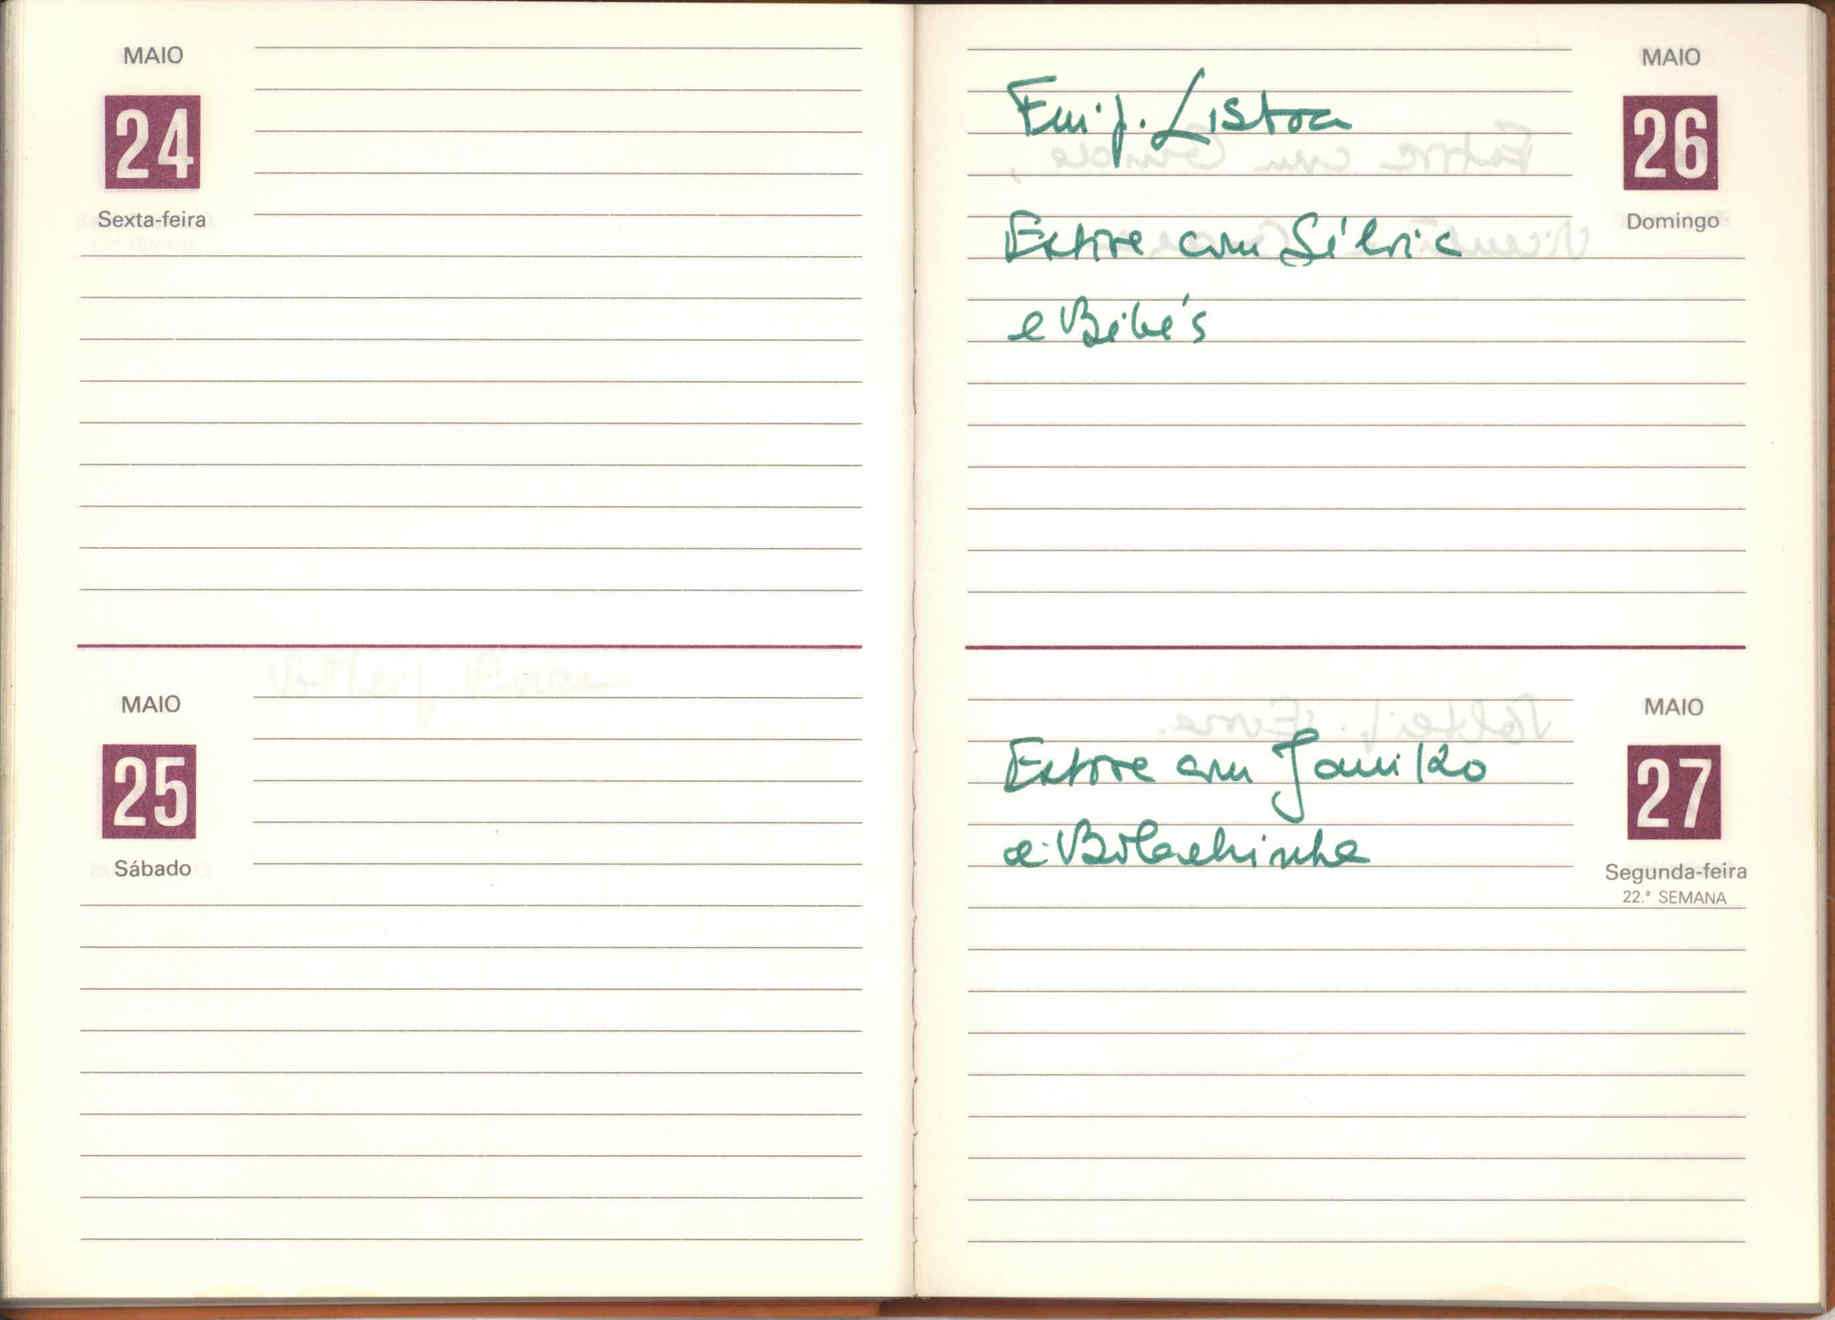 MAIO
24
Sexta-feira
MAIO
25
Sábado
MAIO
26
Domingo
Fui p. Lisboa
Estive com Sílvia
e Bébés
MAIO
27
Segunda-feira
22.ª SEMANA
Estive com
e Bolachinha